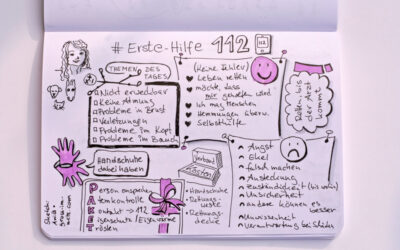 # Erste-Hilfe 112
112
THEMEN DES TAGES
Nicht erweckbar
Keine Atmung
Probleme in Brust
Verletzungen
Probleme im Kopf
Probleme im Bauch
(keine Fehler)
Leben retten
möchte, dass
mir geholfen wird
Ich mag Menschen
Hemmungen überw.
Selbsthilfe
Reden, bis
der Arzt
kommt
Handschuhe
dabei haben
PAKET
Person ansprechen
temkontrolle
notruf → 112
genschutz / Eigenwärme
rösten
Verband
Kasten
Handschuhe
Rettungs-
weste
Rettungs-
decke
Angst
Ekel
falsch machen
Ansteckung
Zuständigkeit (bis wohin)
Unsicherheit
andere können es
besser
Unwissenheit
Verantwortung bei Schäden